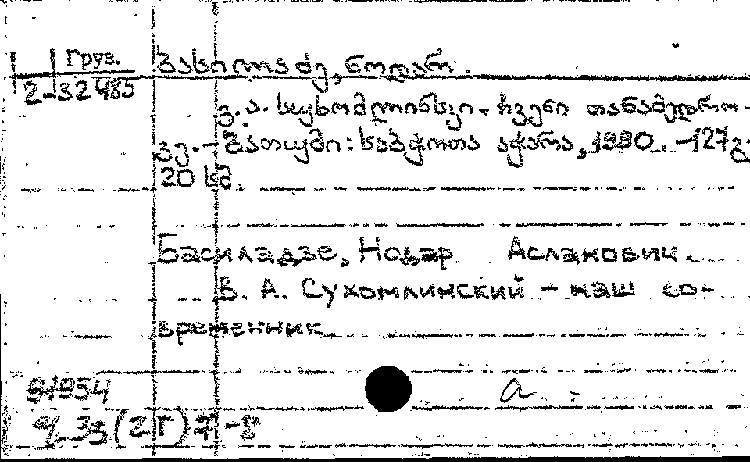 Груз.
2-32485
ბასილაძე, ნოდარ.
ვ. ა. სუხომლინსკი - ჩვენი თანამედრო-
ვე. - ბათუმი: საბჭოთა აჭარა, 1990. - 127გვ.
20 სმ.
Басиладзе, Нодар Асланович.
В. А. Сухомлинский - наш со-
временник
91954
а